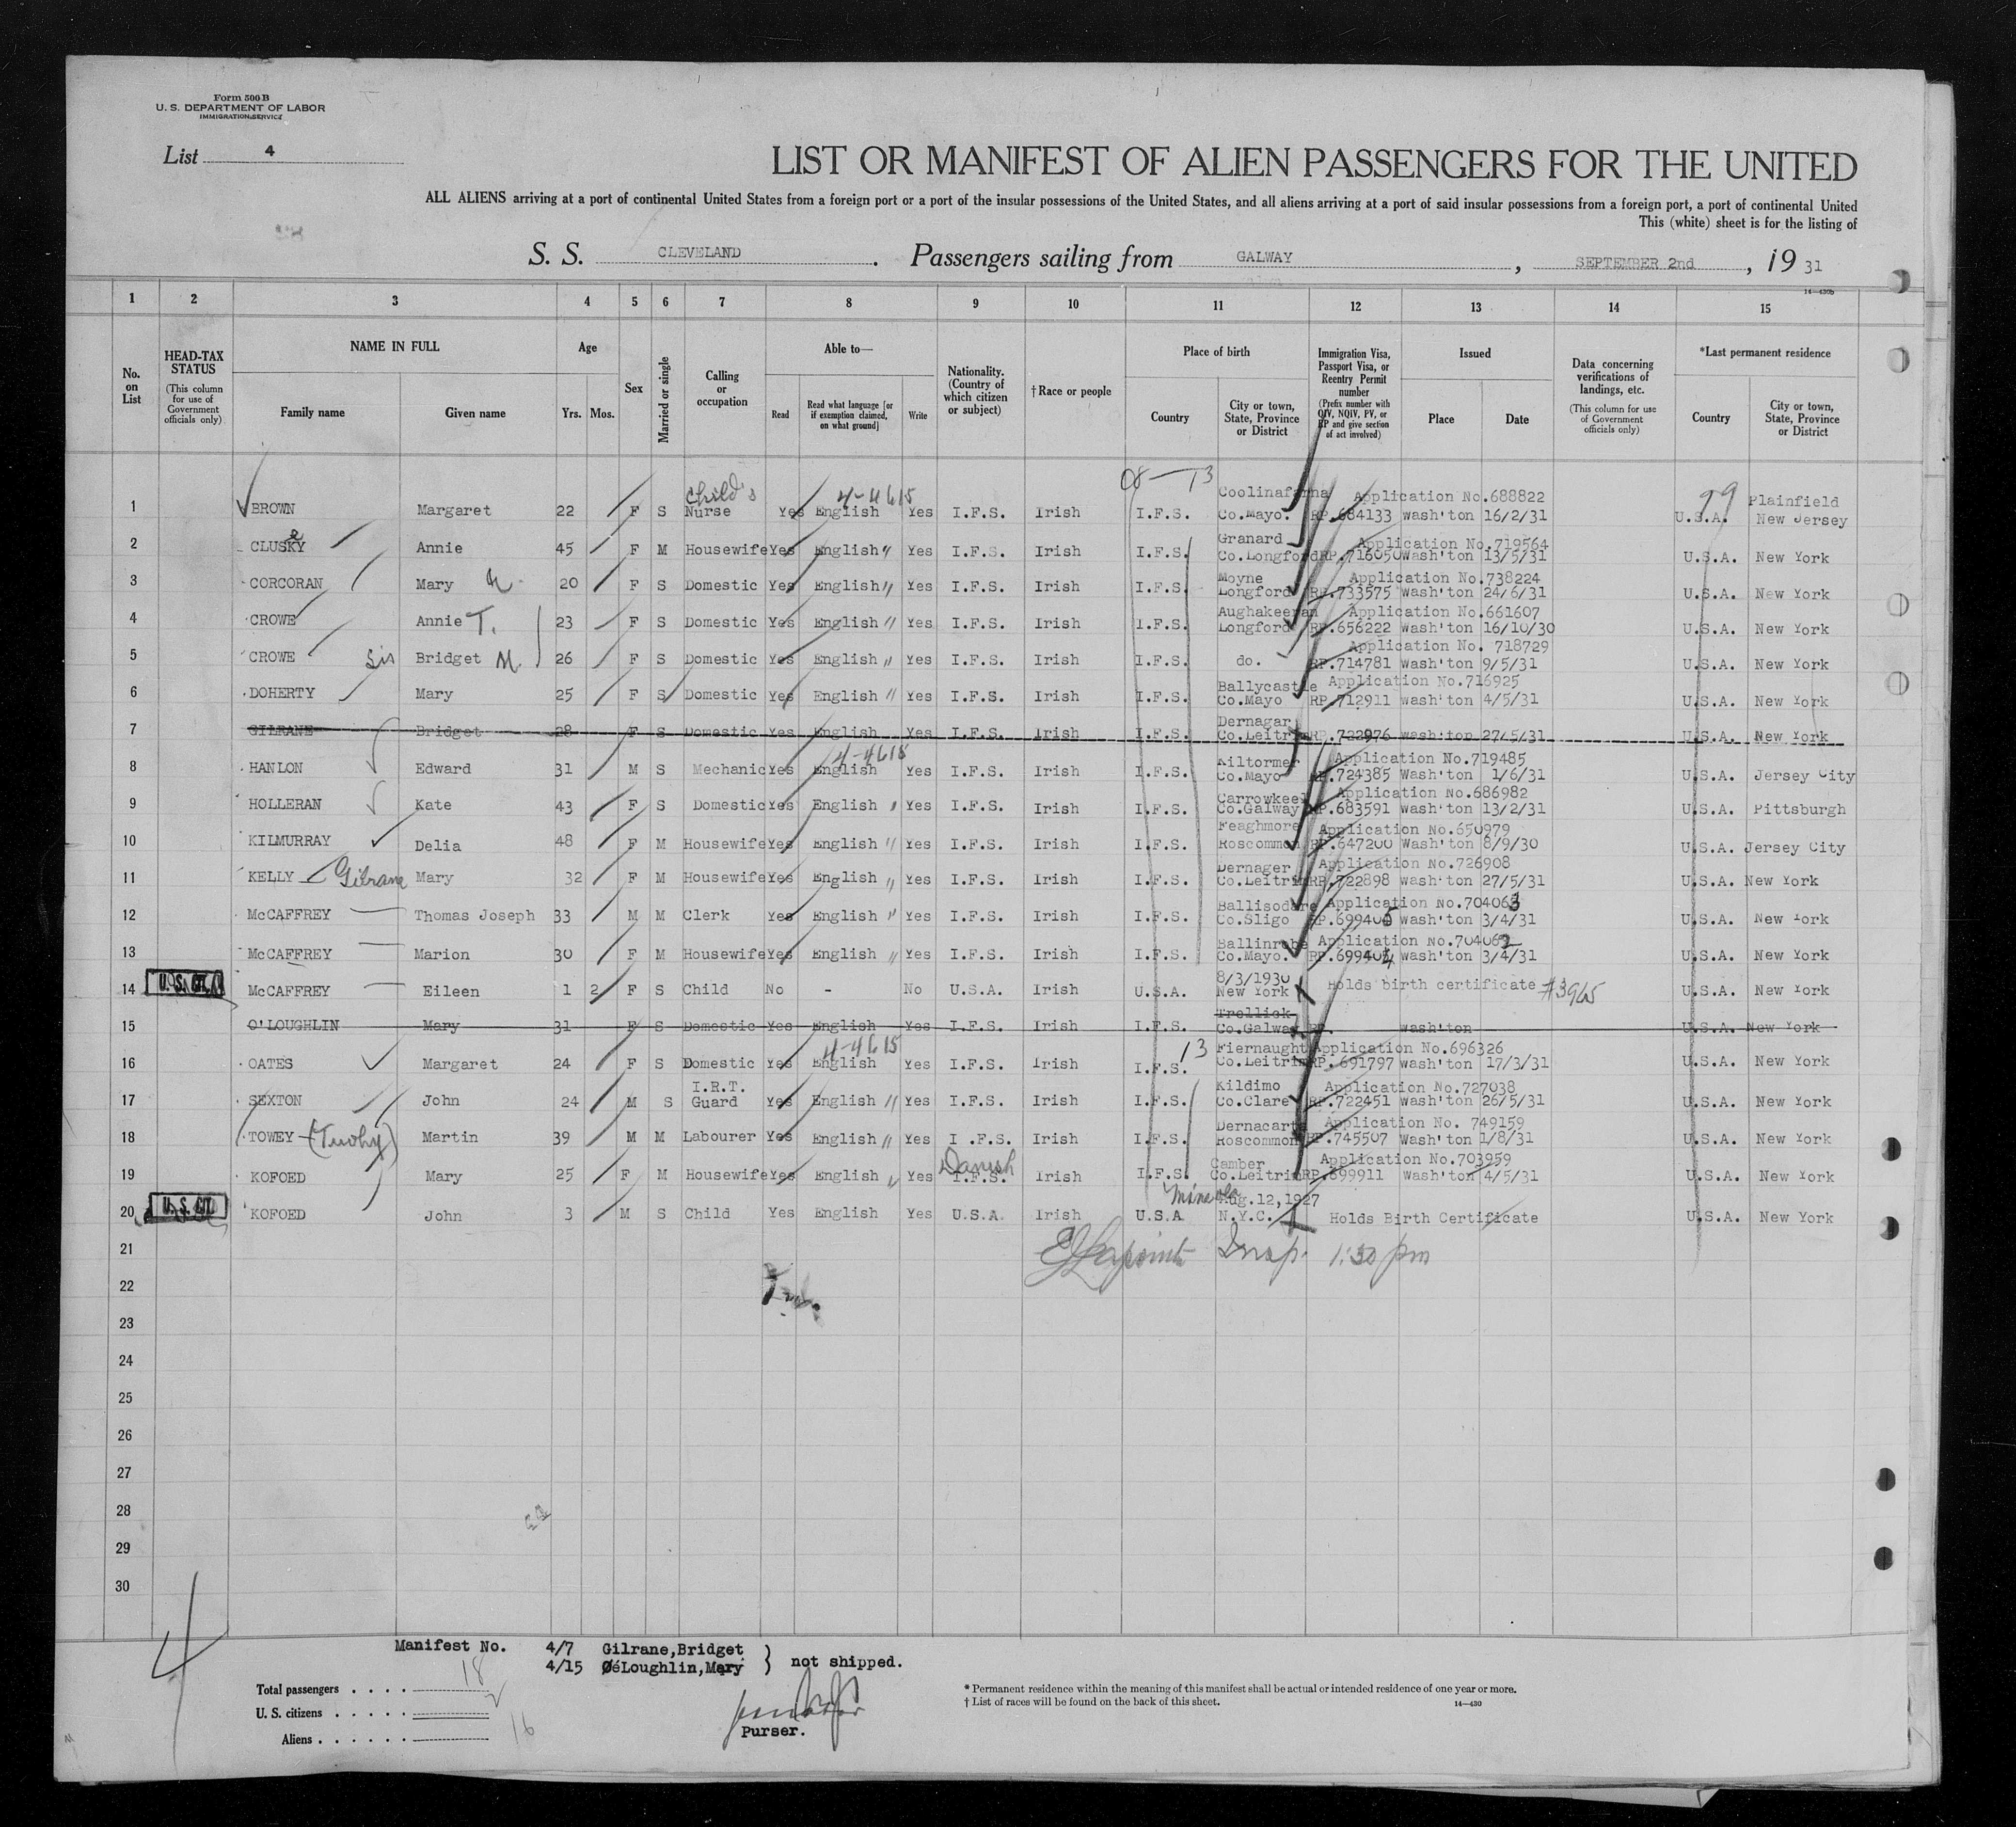 Form 500 B
U. S. DEPARTMENT OF LABOR
IMMIGRATION SERVICE
List 4
LIST OR MANIFEST OF ALIEN PASSENGERS FOR THE UNITED
ALL ALIENS arriving at a port of continental United States from a foreign port or a port of the insular possessions of the United States, and all aliens arriving at a port of said insular possessions from a foreign port, a port of continental United
This (white) sheet is for the listing of
S. S. CLEVELAND. Passengers sailing from GALWAY, SEPTEMBER 2nd, 19 31
14—430b
1 2 3 4 5 6 7 8 9 10 11 12 13 14 15
No. on List
HEAD-TAX STATUS (This column for use of Government officials only)
NAME IN FULL
Family name Given name
Age
Yrs. Mos.
Sex
Married or single
Calling or occupation
Able to—
Read
Read what language [or if exemption claimed, on what ground]
Write
Nationality. (Country of which citizen or subject)
†Race or people
Place of birth
Country
City or town, State, Province or District
Immigration Visa, Passport Visa, or Reentry Permit number
(Prefix number with QIV, NQIV, PV, or RP and give section of act involved)
Issued
Place Date
Data concerning verifications of landings, etc.
(This column for use of Government officials only)
*Last permanent residence
Country
City or town, State, Province or District
08—13 99
Child's 4-4615 Application No.688822 Plainfield
1 BROWN Margaret 22 F S Nurse Yes English Yes I.F.S. Irish I.F.S. Co.Mayo. RP.684133 wash'ton 16/2/31 U.S.A. New Jersey
Granard Application No.719564
2 CLUSKY Annie 45 F M Housewife Yes English " Yes I.F.S. Irish I.F.S. Co.Longford RP.716050 wash'ton 13/5/31 U.S.A. New York
Moyne Application No.738224
3 CORCORAN Mary 20 F S Domestic Yes English " Yes I.F.S. Irish I.F.S. Longford RP.733575 wash'ton 24/6/31 U.S.A. New York
Application No.661607
4 CROWE Annie T. 23 F S Domestic Yes English " Yes I.F.S. Irish I.F.S. Longford RP.656222 wash'ton 16/10/30 U.S.A. New York
Application No. 718729
5 CROWE Sis Bridget M. 26 F S Domestic Yes English " Yes I.F.S. Irish I.F.S. do. RP.714781 wash'ton 9/5/31 U.S.A. New York
Ballycastle Application No.716925
6 DOHERTY Mary 25 F S Domestic Yes English " Yes I.F.S. Irish I.F.S. Co.Mayo RP.712911 wash'ton 4/5/31 U.S.A. New York
Dernagar
7 GILRANE Bridget 28 F S Domestic Yes English Yes I.F.S. Irish I.F.S. Co.Leitrim RP.722976 wash'ton 27/5/31 U.S.A. New York
4-4618 Kiltormer Application No.719485
8 HANLON Edward 31 M S Mechanic Yes English Yes I.F.S. Irish I.F.S. Co.Mayo RP.724385 Wash'ton 1/6/31 U.S.A. Jersey City
Carrowkeel Application No.686982
9 HOLLERAN Kate 43 F S Domestic Yes English " Yes I.F.S. Irish I.F.S. Co.Galway RP.683591 wash'ton 13/2/31 U.S.A. Pittsburgh
Feaghmore Application No.650979
10 KILMURRAY Delia 48 F M Housewife Yes English " Yes I.F.S. Irish I.F.S. Roscommon RP.647200 Wash'ton 8/9/30 U.S.A. Jersey City
Dernager Application No.726908
11 KELLY Gilrane Mary 32 F M Housewife Yes English " Yes I.F.S. Irish I.F.S. Co.Leitrim RP.722898 wash'ton 27/5/31 U.S.A. New York
Ballisodare Application No.704063
12 McCAFFREY Thomas Joseph 33 M M Clerk Yes English " Yes I.F.S. Irish I.F.S. Co.Sligo RP.699405 wash'ton 3/4/31 U.S.A. New York
Ballinrobe Application No.704062
13 McCAFFREY Marion 30 F M Housewife Yes English " Yes I.F.S. Irish I.F.S. Co.Mayo. RP.699404 wash'ton 3/4/31 U.S.A. New York
8/3/1930
14 U.S. CIT. McCAFFREY Eileen 1 2 F S Child No - No U.S.A. Irish U.S.A. New York Holds birth certificate #3965 U.S.A. New York
Trellick
15 O'LOUGHLIN Mary 31 F S Domestic Yes English Yes I.F.S. Irish I.F.S. Co.Galway RP. wash'ton U.S.A. New York
4-4615 13 Fiernaught Application No.696326
16 OATES Margaret 24 F S Domestic Yes English Yes I.F.S. Irish I.F.S. Co.Leitrim RP.691797 wash'ton 17/3/31 U.S.A. New York
I.R.T. Kildimo Application No.727038
17 SEXTON John 24 M S Guard Yes English " Yes I.F.S. Irish I.F.S. Co.Clare RP.722451 wash'ton 26/5/31 U.S.A. New York
Application No. 749159
18 TOWEY (Tuohy) Martin 39 M M Labourer Yes English " Yes I .F.S. Irish I.F.S. Roscommon RP.745507 Wash'ton 1/8/31 U.S.A. New York
Danish Camber Application No.703959
19 KOFOED Mary 25 F M Housewife Yes English " Yes I.F.S. Irish I.F.S. Co.Leitrim RP.699911 Wash'ton 4/5/31 U.S.A. New York
Mineola Aug.12,1927
20 U.S. CIT. KOFOED John 3 M S Child Yes English Yes U.S.A. Irish U.S.A N.Y.C. Holds Birth Certificate U.S.A. New York
21 Insp. 1:30 pm
22
23
24
25
26
27
28
29
30
4
Manifest No. 4/7 Gilrane,Bridget
4/15 O'Loughlin,Mary } not shipped.
Total passengers . . . . 18
U. S. citizens . . . . . 2
Aliens . . . . . . 16
Purser.
* Permanent residence within the meaning of this manifest shall be actual or intended residence of one year or more.
† List of races will be found on the back of this sheet. 14—430